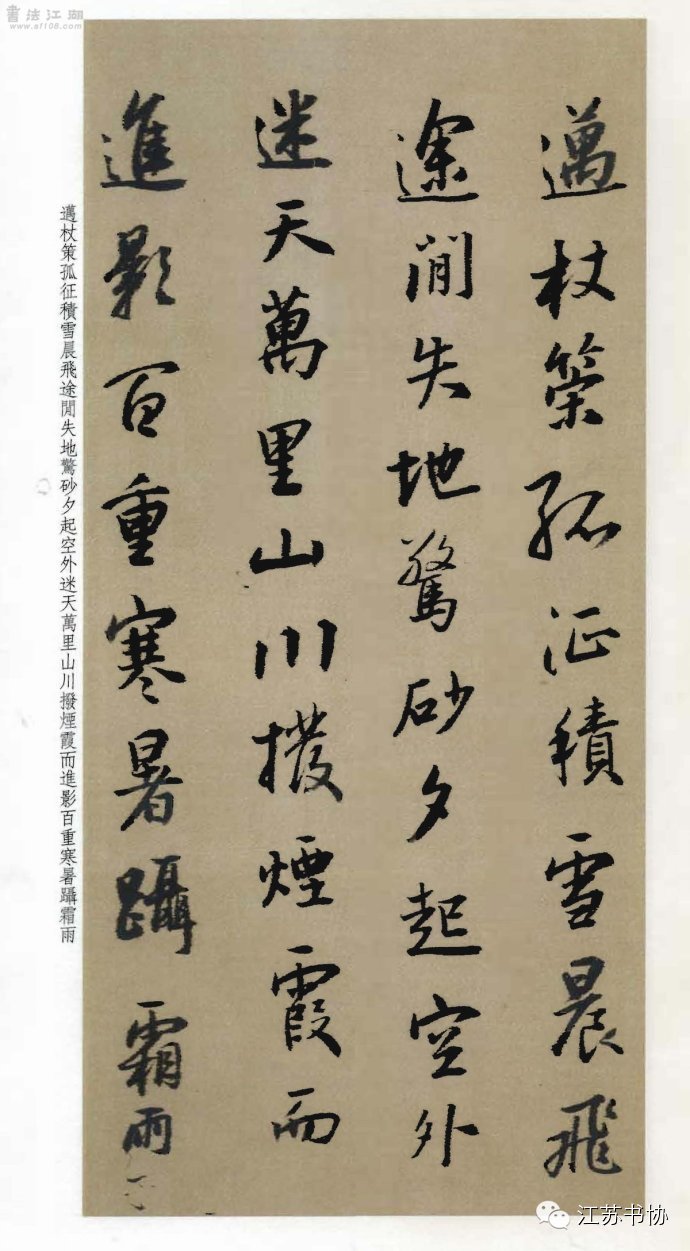 書法江湖
www.sf108.com
邁杖策孤征積雪晨飛
途間失地驚砂夕起空外
迷天萬里山川撥煙霞而
進影百重寒暑躡霜雨
邁杖策孤征積雪晨飛途閒失地驚砂夕起空外迷天萬里山川撥煙霞而進影百重寒暑躡霜雨
江苏书协